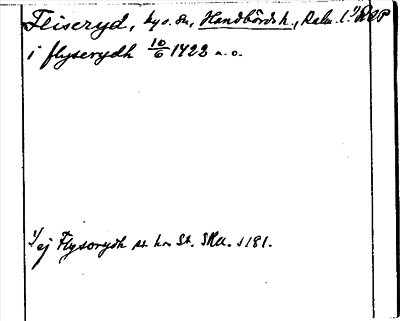 Fliseryd, by o. sn, Handbörds h., Kalm. l. 1) ROP
i flyserydh 10/6 1422 a. o.
1/ ej Flysorydh st. h os St. SRU. s 181.